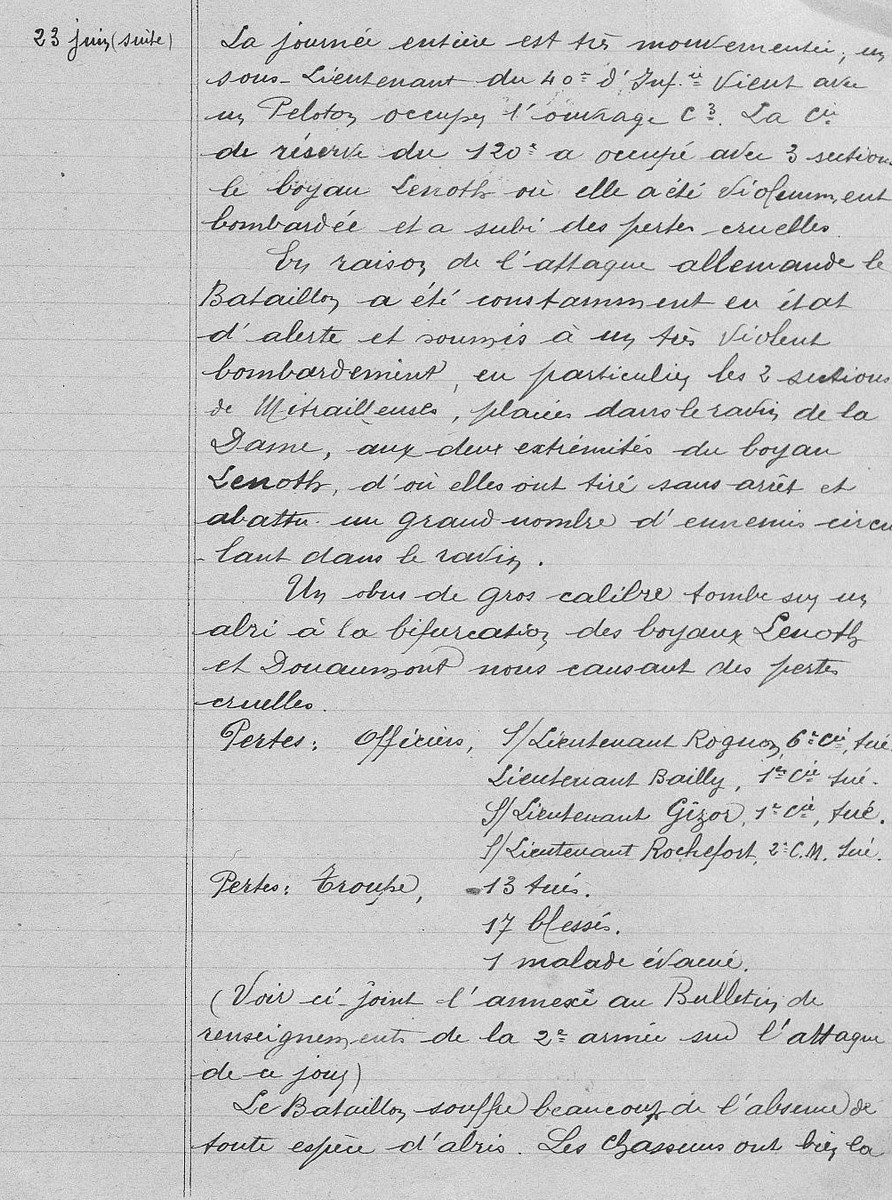 23 juin (suite)
La journée entière est très mouvementée, un
sous-Lieutenant du 40e d'Inf.ie vient avec
un Peloton occuper l'ouvrage C3. La Cie
de réserve du 120e a occupé avec 3 sections
le boyau Lenoth où elle a été violemment
bombardée et a subi des pertes cruelles.
En raison de l'attaque allemande le
Bataillon a été constamment en état
d'alerte et soumis à un très violent
bombardement, en particulier les 2 sections
de Mitrailleuses, placées dans le ravin de la
Dame, aux deux extrémités du boyau
Lenoth, d'où elles ont tiré sans arrêt et
abattu un grand nombre d'ennemis circu
-lant dans le ravin.
Un obus de gros calibre tombe sur un
abri à la bifurcation des boyaux Lenoth
et Douaumont nous causant des pertes
cruelles.
Pertes: Officiers, S/Lieutenant Rognon, 6e Cie, tué
Lieutenant Bailly, 1re Cie tué.
S/Lieutenant Gizor, 1e Cie, tué.
S/Lieutenant Rochefort, 2e C.M. tué.
Pertes: Troupe, 13 tués.
17 blessés.
1 malade évacué.
(Voir ci-joint l'annexe au Bulletin de
renseignements de la 2e armée sur l'attaque
de ce jour)
Le Bataillon souffre beaucoup de l'absence de
toute espèce d'abris. Les chasseurs ont bien la